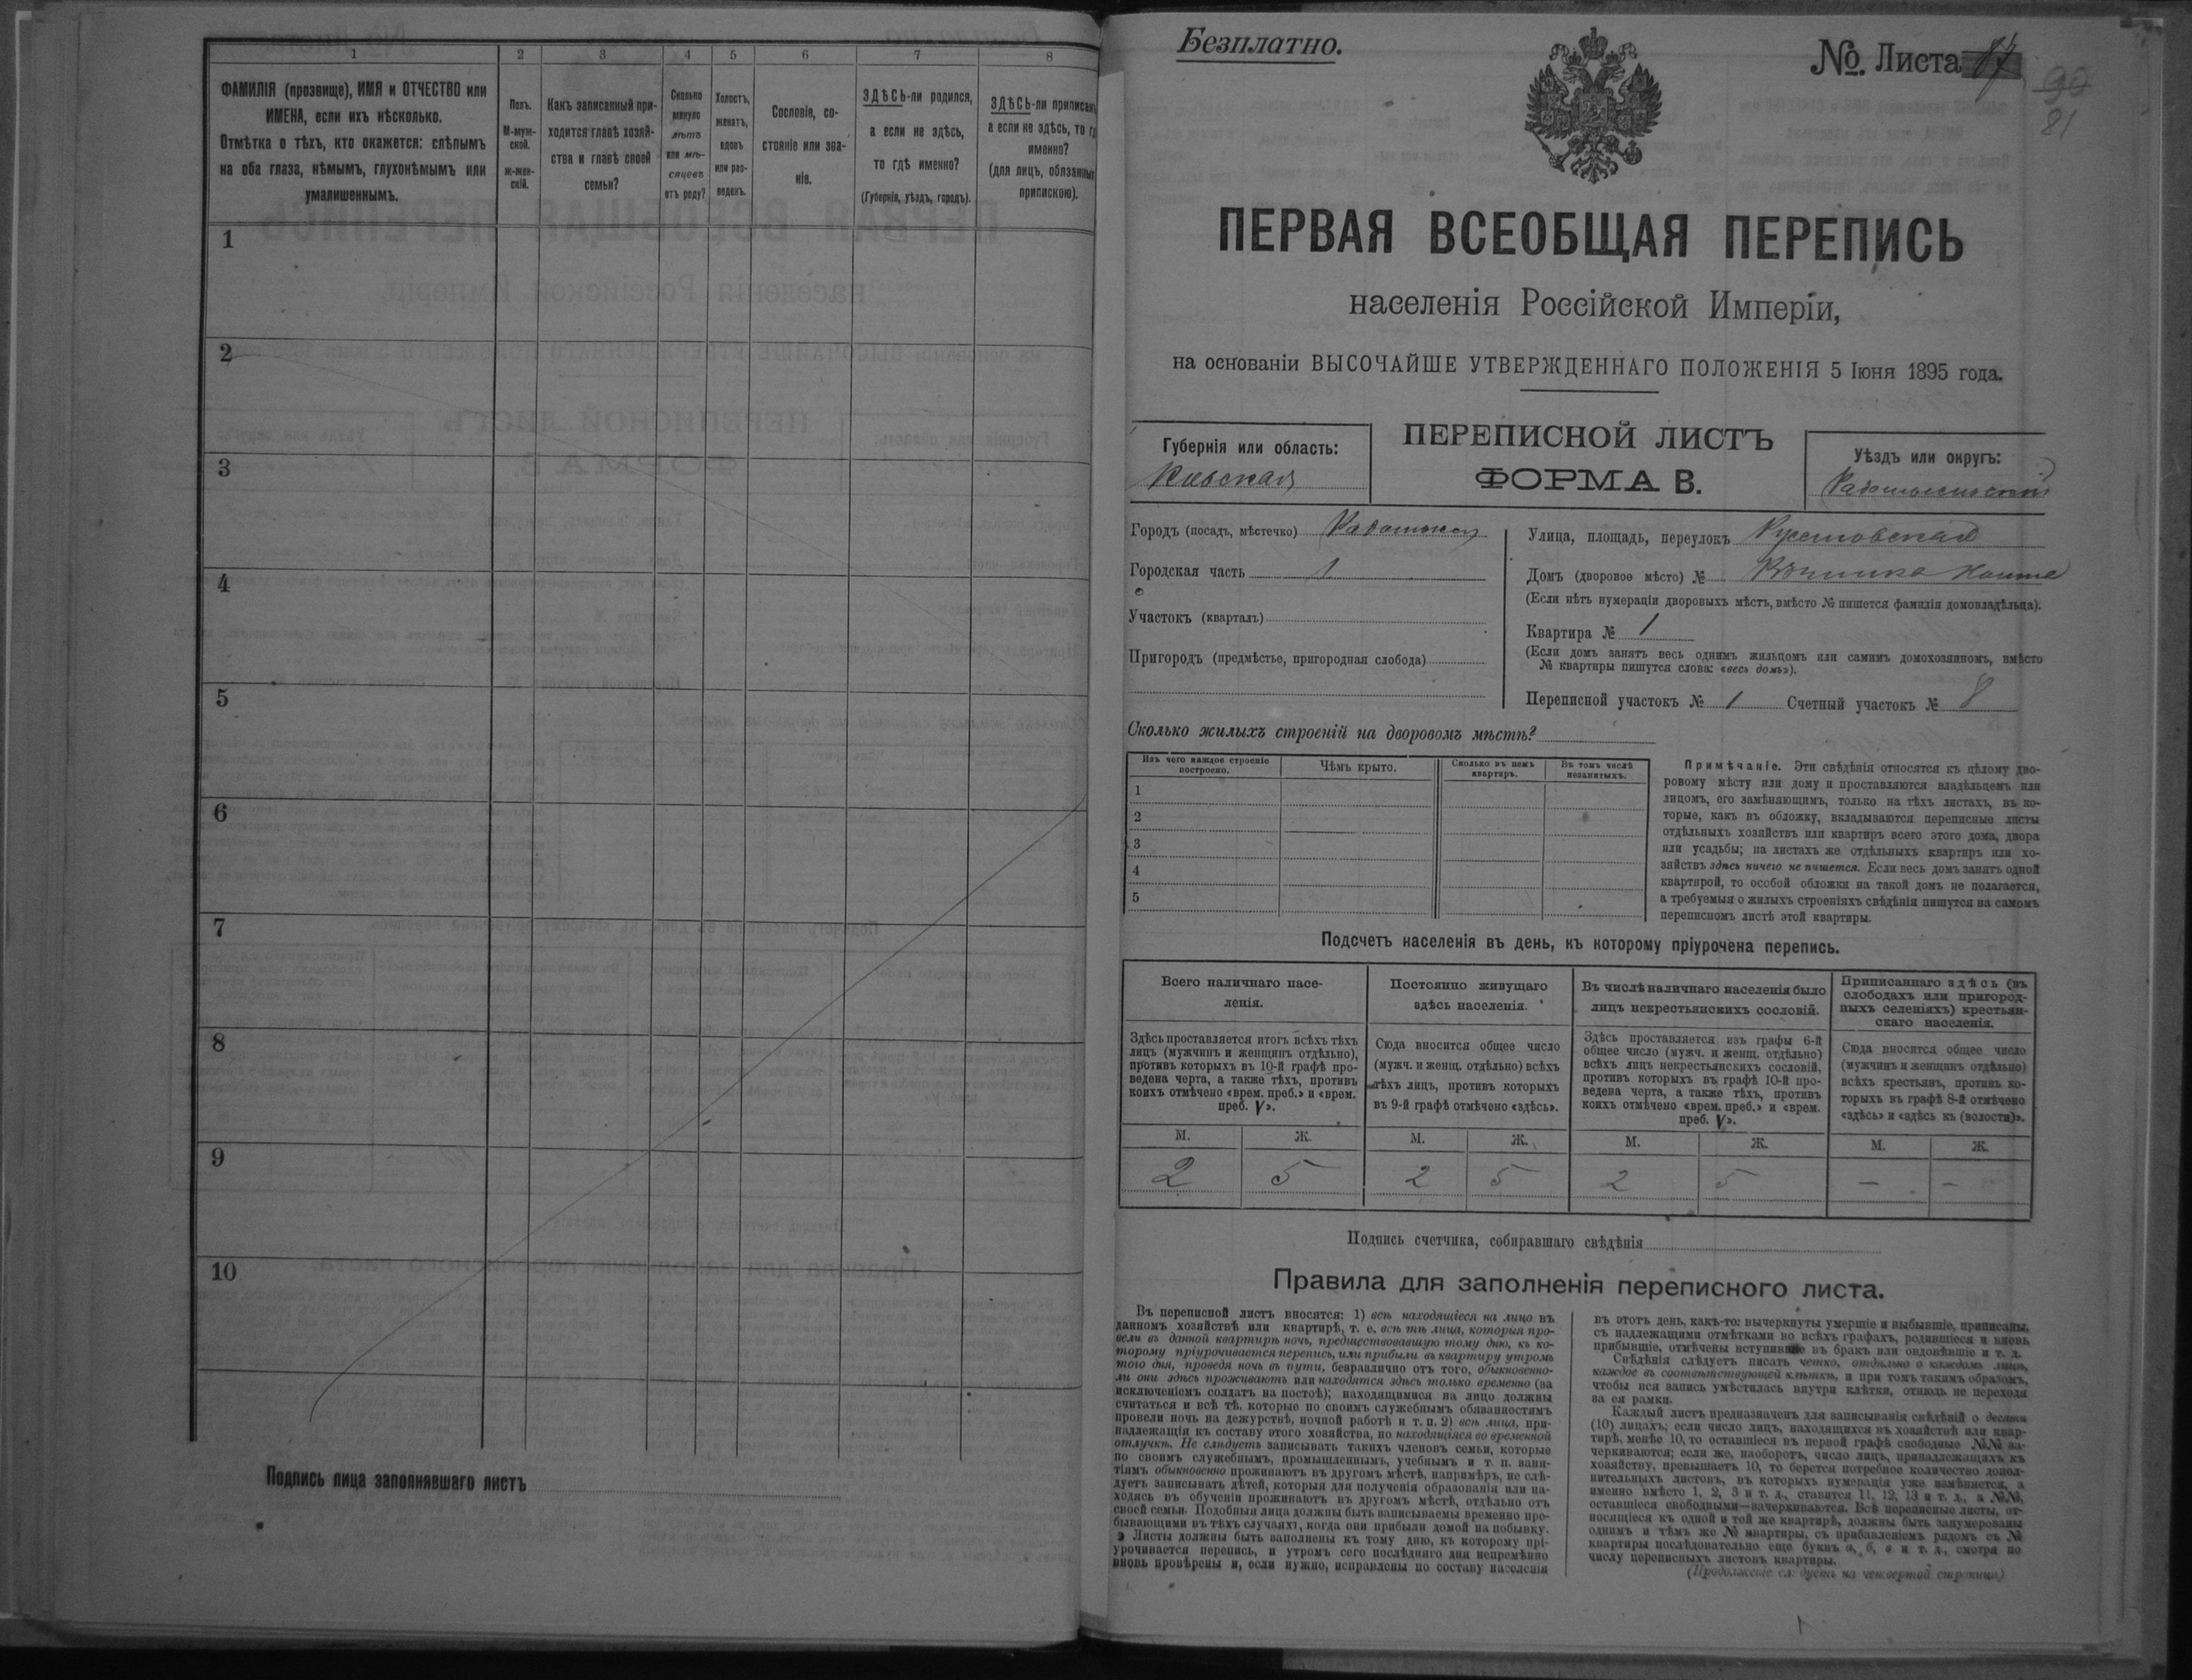 1
2
3
4
5
6
7
8
ФАМИЛІЯ (прозвище), ИМЯ и ОТЧЕСТВО или
ИМЕНА, если ихъ нѣсколько.
Отмѣтка о тѣхъ, кто окажется: слѣпымъ
на оба глаза, нѣмымъ, глухонѣмымъ или
умалишеннымъ.
Полъ.
М-муж-
ской.
ж-жен-
скій.
Какъ записанный при-
ходится главѣ хозяй-
ства и главѣ своей
семьи?
Сколько
минуло
лѣтъ
или мѣ-
сяцевъ
отъ роду?
Холостъ,
женатъ,
вдовъ
или раз-
веденъ.
Сословіе, со-
стояніе или зва-
ніе.
ЗДѢСЬ-ли родился,
а если не здѣсь,
то гдѣ именно?
(Губернія, уѣздъ, городъ).
ЗДѢСЬ-ли приписанъ
а если не здѣсь, то гдѣ
именно?
(для лицъ, обязанныхъ
припискою).
1
2
3
4
5
6
7
8
9
10
Подпись лица заполнявшаго листъ
Безплатно.
№. Листа 87
90
81
ПЕРВАЯ ВСЕОБЩАЯ ПЕРЕПИСЬ
населенія Россійской Имперіи,
на основаніи ВЫСОЧАЙШЕ УТВЕРЖДЕННАГО ПОЛОЖЕНІЯ 5 Іюня 1895 года.
Губернія или область:
Кіевская
ПЕРЕПИСНОЙ ЛИСТЪ
ФОРМА В.
Уѣздъ или округъ:
Радомысльскій
Городъ (посадъ, мѣстечко) Радомысль
Городская часть 1
Участокъ (кварталъ)
Пригородъ (предмѣстье, пригородная слобода)
Улица, площадь, переулокъ
Домъ (дворовое мѣсто) №
(Если нѣтъ нумераціи дворовыхъ мѣстъ, вмѣсто № пишется фамилія домовладѣльца).
Квартира № 1
(Если домъ занятъ весь однимъ жильцомъ или самимъ домохозяиномъ, вмѣсто
№ квартиры пишутся слова: «весь домъ»).
Переписной участокъ № 1 Счетный участокъ № 8
Сколько жилыхъ строеній на дворовомъ мѣстѣ?
Изъ чего каждое строеніе
построено.
Чѣмъ крыто.
Сколько въ немъ
квартиръ.
Въ томъ числѣ
незанятыхъ.
1
2
3
4
5
Примѣчаніе. Эти свѣдѣнія относятся къ цѣлому дво-
ровому мѣсту или дому и проставляются владѣльцемъ или
лицомъ, его замѣняющимъ, только на тѣхъ листахъ, въ ко-
торые, какъ въ обложку, вкладываются переписные листы
отдѣльныхъ хозяйствъ или квартиръ всего этого дома, двора
или усадьбы; на листахъ же отдѣльныхъ квартиръ или хо-
зяйствъ здѣсь ничего не пишется. Если весь домъ занятъ одной
квартирой, то особой обложки на такой домъ не полагается,
а требуемыя о жилыхъ строеніяхъ свѣдѣнія пишутся на самомъ
переписномъ листѣ этой квартиры.
Подсчетъ населенія въ день, къ которому пріурочена перепись.
Всего наличнаго насе-
ленія.
Постоянно живущаго
здѣсь населенія.
Въ числѣ наличнаго населенія было
лицъ некрестьянскихъ сословій.
Приписаннаго здѣсь (въ
слободахъ или пригород-
ныхъ селеніяхъ) крестьян-
скаго населенія.
Здѣсь проставляется итогъ всѣхъ тѣхъ
лицъ (мужчинъ и женщинъ отдѣльно),
противъ которыхъ въ 10-й графѣ про-
ведена черта, а также тѣхъ, противъ
коихъ отмѣчено «врем. преб.» и «врем.
преб. V».
Сюда вносится общее число
(мужч. и женщ. отдѣльно) всѣхъ
тѣхъ лицъ, противъ которыхъ
въ 9-й графѣ отмѣчено «здѣсь».
Здѣсь проставляется изъ графы 6-й
общее число (мужч. и женщ. отдѣльно)
всѣхъ лицъ некрестьянскихъ сословій,
противъ которыхъ въ графѣ 10-й про-
ведена черта, а также тѣхъ, противъ
коихъ отмѣчено «врем. преб.» и «врем.
преб. V».
Сюда вносится общее число
(мужчинъ и женщинъ отдѣльно)
всѣхъ крестьянъ, противъ ко-
торыхъ въ графѣ 8-й отмѣчено
«здѣсь» и «здѣсь къ (волости)».
М. Ж. М. Ж. М. Ж. М. Ж.
2 5 2 5 2 5 — —
Подпись счетчика, собиравшаго свѣдѣнія
Правила для заполненія переписного листа.
Въ переписной листъ вносятся: 1) всѣ находящіеся на лицо въ
данномъ хозяйствѣ или квартирѣ, т. е. всѣ тѣ лица, которыя про-
вели въ данной квартирѣ ночь, предшествовавшую тому дню, къ ко-
торому пріурочивается перепись, или прибыли въ квартиру утромъ
того дня, проведя ночь въ пути, безразлично отъ того, обыкновенно-
ли они здѣсь проживаютъ или находятся здѣсь только временно (за
исключеніемъ солдатъ на постоѣ); находящимися на лицо должны
считаться и всѣ тѣ, которые по своимъ служебнымъ обязанностямъ
провели ночь на дежурствѣ, ночной работѣ и т. п. 2) всѣ лица, при-
надлежащія къ составу этого хозяйства, но находящіяся во временной
отлучкѣ. Не слѣдуетъ записывать такихъ членовъ семьи, которые
по своимъ служебнымъ, промышленнымъ, учебнымъ и т. п. заня-
тіямъ обыкновенно проживаютъ въ другомъ мѣстѣ, напримѣръ, не слѣ-
дуетъ записывать дѣтей, которыя для полученія образованія или на-
ходясь въ обученіи проживаютъ въ другомъ мѣстѣ, отдѣльно отъ
своей семьи. Подобныя лица должны быть записываемы временно пре-
бывающими въ тѣхъ случаяхъ, когда они прибыли домой на побывку.
Листы должны быть заполнены къ тому дню, къ которому прі-
урочивается перепись, и утромъ сего послѣдняго дня непремѣнно
вновь провѣрены и, если нужно, исправлены по составу населенія
въ этотъ день, какъ-то: вычеркнуты умершіе и выбывшіе, приписаны,
съ надлежащими отмѣтками во всѣхъ графахъ, родившіеся и вновь
прибывшіе, отмѣчены вступившіе въ бракъ или овдовѣвшіе и т. д.
Свѣдѣнія слѣдуетъ писать четко, отдѣльно о каждомъ лицѣ,
каждое въ соотвѣтствующей клѣткѣ, и при томъ такимъ образомъ,
чтобы вся запись умѣстилась внутри клѣтки, отнюдь не переходя
за ея рамки.
Каждый листъ предназначенъ для записыванія свѣдѣній о десяти
(10) лицахъ; если число лицъ, находящихся въ хозяйствѣ или квар-
тирѣ, менѣе 10, то оставшіеся въ первой графѣ свободные №№ за-
черкиваются; если же, наоборотъ, число лицъ, принадлежащихъ къ
хозяйству, превышаетъ 10, то берется потребное количество допол-
нительныхъ листовъ, въ которыхъ нумерація уже измѣняется, а
именно вмѣсто 1, 2, 3 и т. д., ставится 11, 12, 13 и т. д., а №№,
оставшіеся свободными—зачеркиваются. Всѣ переписные листы, от-
носящіеся къ одной и той же квартирѣ, должны быть занумерованы
однимъ и тѣмъ же № квартиры, съ прибавленіемъ рядомъ съ №
квартиры послѣдовательно еще буквъ а, б, в и т. д., смотря по
числу переписныхъ листовъ квартиры.
(Продолженіе слѣдуетъ на четвертой страницѣ)